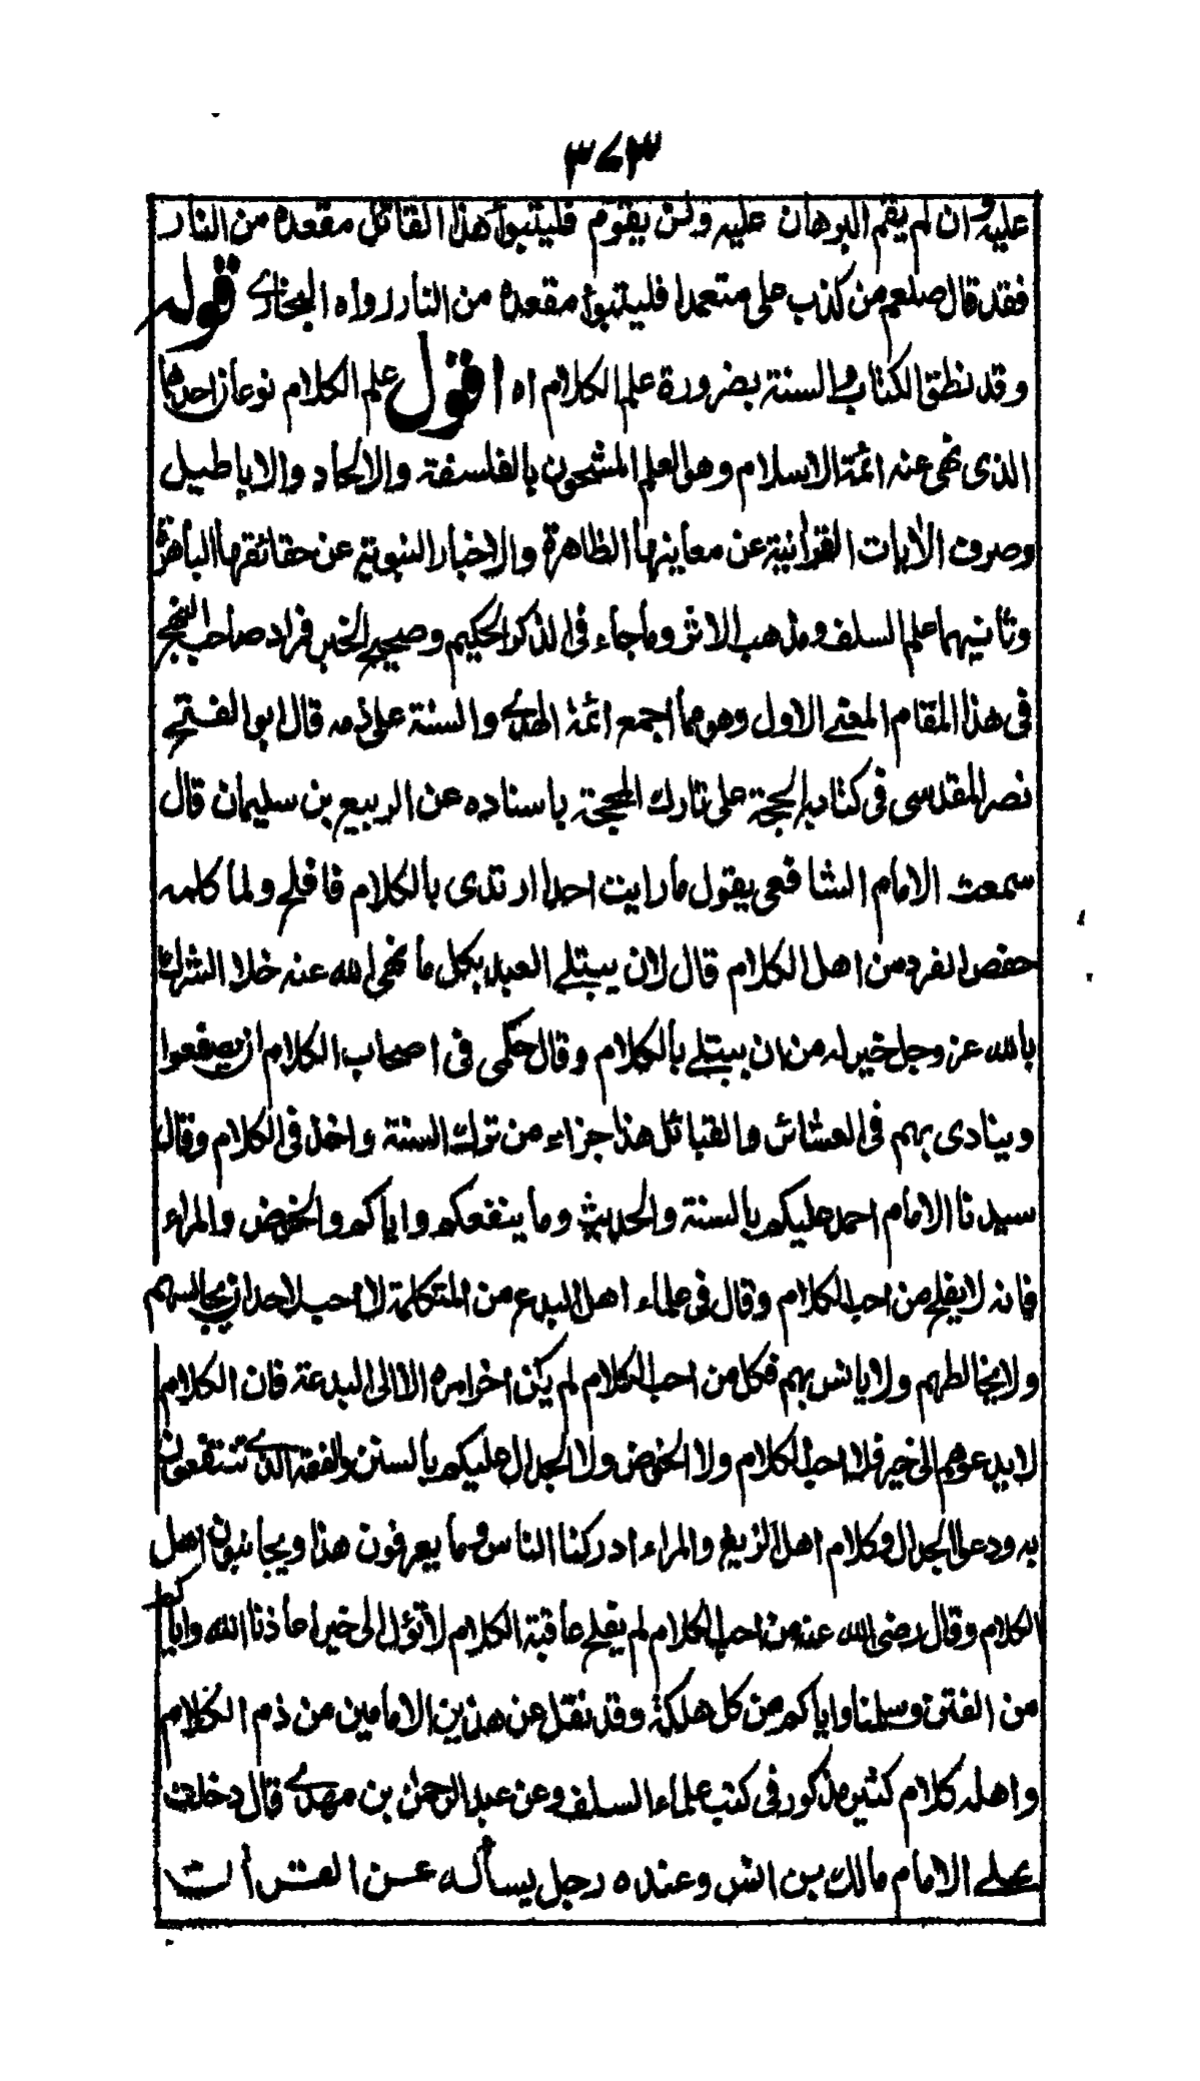 ٣٧٣
عليه وان لم يقم البرهان عليه ولن يقوم فليتبوأ هذا القائل مقعده من النار
فقد قال صلعم من كذب على متعمدا فليتبوأ مقعده من النار رواه البخارى قوله
وقد نطق الكتاب والسنة بضرورة علم الكلام اه اقول علم الكلام نوعان احدهما
الذى نهى عنه ائمة الاسلام وهو العلم المشحون بالفلسفة والالحاد والاباطيل
وصرف الأيات القرأنية عن معاينها الظاهرة والاخبار النبوية عن حقائقها الباهرة
وثانيهما علم السلف ومذهب الاثر وما جاء فى الذكر الحكيم وصحيح الخبر فراد صاحب النهج
فى هذا المقام المعنى الاول وهو مما اجمع ائمة الهدى والسنة على ذمه قال ابو الفتح
نصر المقدسى فى كتابه الحجة على تارك المحجة باسناده عن الربيع بن سليمان قال
سمعت الامام الشافعى يقول ما رايت احدا ارتدى بالكلام فافلح ولما كلمه
حفص الفرد من اهل الكلام قال لان يبتلى العبد بكل ما نهى الله عنه خلا الشرك
بالله عز وجل خير له من ان يبتلى بالكلام وقال حكمى فى اصحاب الكلام ان يصفعوا
وينادى بهم فى العشائر والقبائل هذا جزاء من ترك السنة واخذ فى الكلام وقال
سيدنا الامام احمد عليكم بالسنة والحديث وما ينفعكم واياكم والخوض والمراء
فانه لا يفلح من احب الكلام وقال فى علماء اهل البدع من المتكلمة لا احب لاحد ان يجالسهم
ولا يخالطهم ولا يانس بهم فكل من احب الكلام لم يكن اخر امره الا الى البدعة فان الكلام
لا يدعوهم الى خير فلا احب الكلام ولا الخوض ولا الجدال عليكم بالسنن والفقه الذى تنتفعون
به ودعوا الجدال وكلام اهل الزيغ والمراء ادركنا الناس وما يعرفون هذا ويجانبون اهل
الكلام وقال رضى الله عنه من احب الكلام لم يفلح عاقبة الكلام لا تؤل الى خير اعاذنا الله واياكم
من الفتن وسلمنا واياكم من كل هلكة وقد نقل عن هذين الامامين من ذم الكلام
واهله كلام كثير مذكور فى كتب علماء السلف وعن عبد الرحمن بن مهدى قال دخلت
على الامام مالك بن انس وعنده رجل يسأله عن القرأن